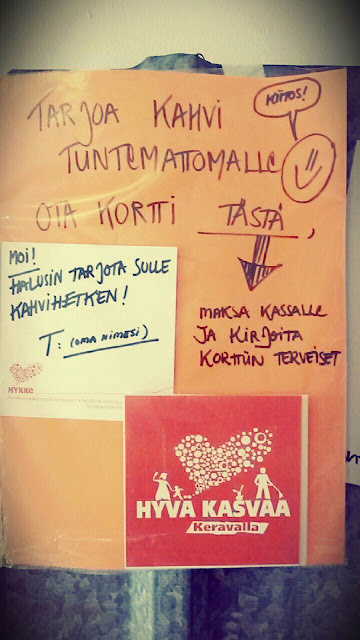 TARJOA KAHVI
KIITOS!
TUNTEMATTOMALLE
OTA KORTTI TÄSTÄ,
MOI!
HALUSIN TARJOTA SULLE
KAHVIHETKEN!
T: (OMA NIMESI)
HYKKE
MAKSA KASSALLE
JA KIRJOITA
KORTTIIN TERVEISET
HYVÄ KASVAA
Keravalla